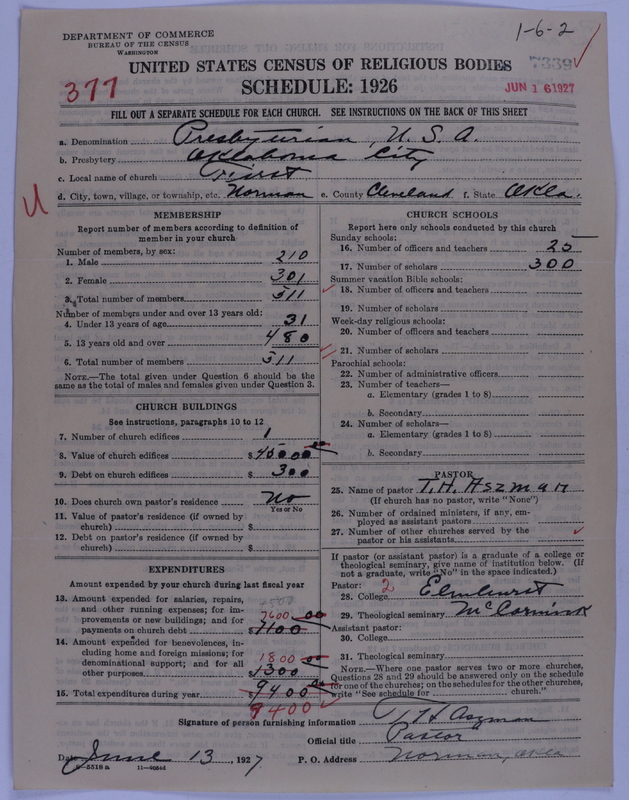 DEPARTMENT OF COMMERCE
BUREAU OF THE CENSUS
WASHINGTON
1-6-2
UNITED STATES CENSUS OF RELIGIOUS BODIES
7339
377
SCHEDULE: 1926
JUN 1 6 1927
FILL OUT A SEPARATE SCHEDULE FOR EACH CHURCH. SEE INSTRUCTIONS ON THE BACK OF THIS SHEET
a. Denomination Presbyterian, U.S.A.
b. Presbytery Oklahoma City
c. Local name of church First
d. City, town, village, or township, etc. Norman e. County Cleveland f. State Okla.
U
MEMBERSHIP
Report number of members according to definition of
member in your church
Number of members, by sex:
1. Male 210
2. Female 301
3. Total number of members 511
Number of members under and over 13 years old:
4. Under 13 years of age 31
5. 13 years old and over 480
6. Total number of members 511
NOTE.—The total given under Question 6 should be the
same as the total of males and females given under Question 3.
CHURCH BUILDINGS
See instructions, paragraphs 10 to 12
7. Number of church edifices 1
8. Value of church edifices $40000 00
9. Debt on church edifices $300
10. Does church own pastor's residence No
Yes or No
11. Value of pastor's residence (if owned by
church) $
12. Debt on pastor's residence (if owned by
church) $
EXPENDITURES
Amount expended by your church during last fiscal year
13. Amount expended for salaries, repairs,
and other running expenses; for im-
provements or new buildings; and for
payments on church debt
7600 00
$1100
14. Amount expended for benevolences, in-
cluding home and foreign missions; for
denominational support; and for all
other purposes
1800 00
$1300
15. Total expenditures during year $9400 00
9400
CHURCH SCHOOLS
Report here only schools conducted by this church
Sunday schools:
16. Number of officers and teachers 25
17. Number of scholars 300
Summer vacation Bible schools:
18. Number of officers and teachers
19. Number of scholars
Week-day religious schools:
20. Number of officers and teachers
21. Number of scholars
Parochial schools:
22. Number of administrative officers
23. Number of teachers—
a. Elementary (grades 1 to 8)
b. Secondary
24. Number of scholars—
a. Elementary (grades 1 to 8)
b. Secondary
PASTOR
25. Name of pastor T. H. Aszman
(If church has no pastor, write "None")
26. Number of ordained ministers, if any, em-
ployed as assistant pastors
27. Number of other churches served by the
pastor or his assistants
If pastor (or assistant pastor) is a graduate of a college or
theological seminary, give name of institution below. (If
not a graduate, write "No" in the space indicated.)
Pastor: 2
28. College Elmhurst
29. Theological seminary McCormick
Assistant pastor:
30. College
31. Theological seminary
NOTE.—Where one pastor serves two or more churches,
Questions 28 and 29 should be answered only on the schedule
for one of the churches; on the schedules for the other churches,
write "See schedule for church."
Signature of person furnishing information T H Aszman
Official title Pastor
Date June 13, 1927 P. O. Address Norman, Okla
8-5518 a